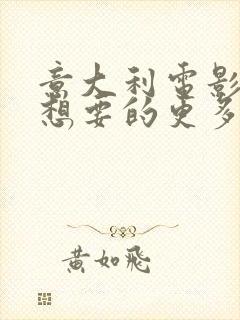 意大利電影
想要的更多
黃如飛